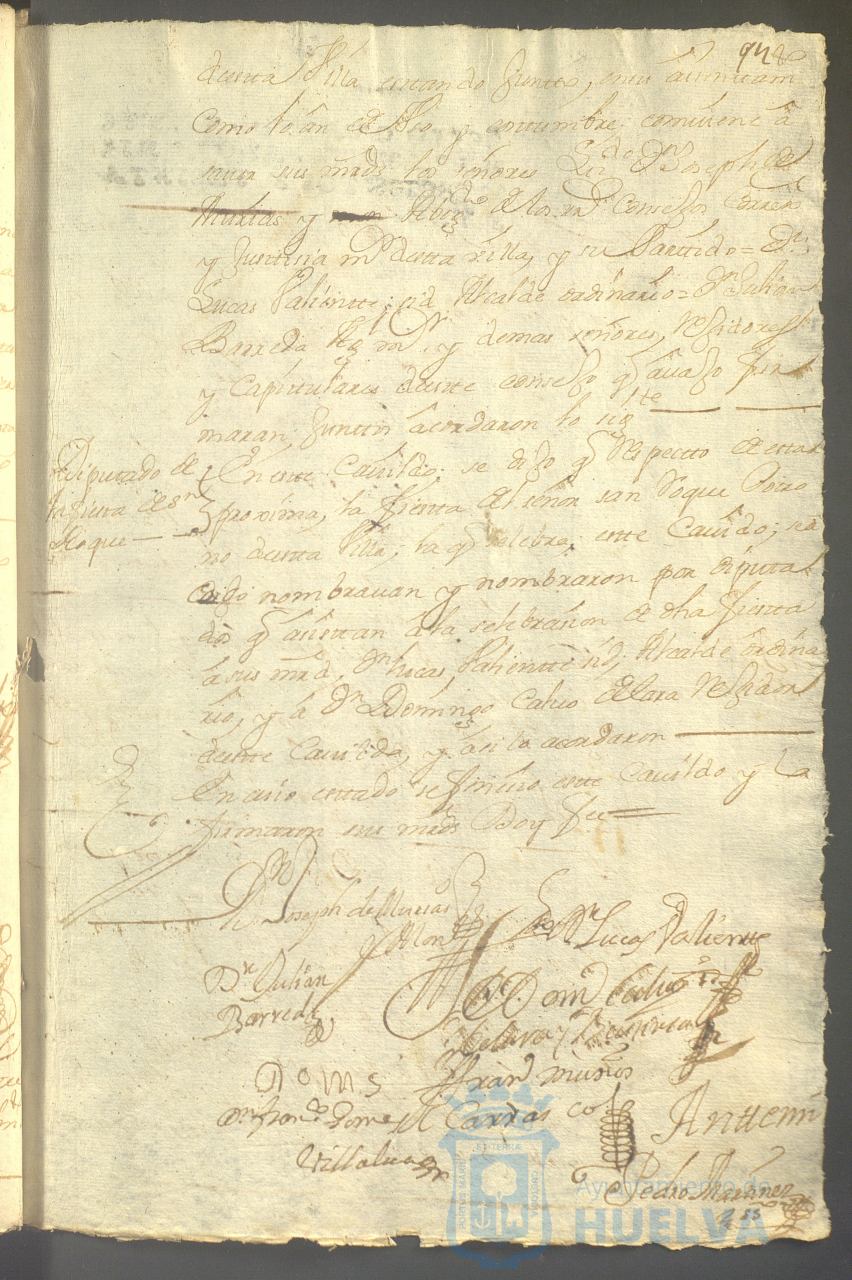 94
de esta Villa estando Juntos, en su aiuntam
Como lo an de Uso y costumbre; combiene â
saver sus mrds los señores Lizdo Dn Joseph de
Murias y Mon Abogdo de los rs Consejos Correxr
y Justisia mr de esta villa, y su Partido = Dn
Lucas Valiente; Alcalde ordinario = Dn Julian
Barreda Algl mr y demas señores, Rexidores
y Capitulares de este consejo q avajo fir
maran, Juntos acordaron lo sigte
Diputado de
la fiesta de Sn
Roque
En este Cavildo; se dijo q Respecto de estar
proxima, la fiesta del señor san Roque Patro
no de esta Villa; la q selebra este Cavildo;
nombravan y nombraron por diputa
dos q asistan â la selebrasion de dha fiesta
â sus mrd, Dn Lucas, Valiente Alcalde ordina
rio, y â Dn Domingo Calvo de Lara Rexidor
de este Cavildo, y asi lo acordaron
En cuio estado se finalizo este Cavildo y lo
firmaron sus mrds Doy fee =
Dn Joseph de Murias
y Mon
Dn Lucas Valiente
Dn Julian
Barreda
Dn Domo Calvo
de Lara y
Fran Muños
Carras co
Dn Franco Gomes
Villalva
Antte mi
Pedro Martinez
Ayuntamiento de
HUELVA